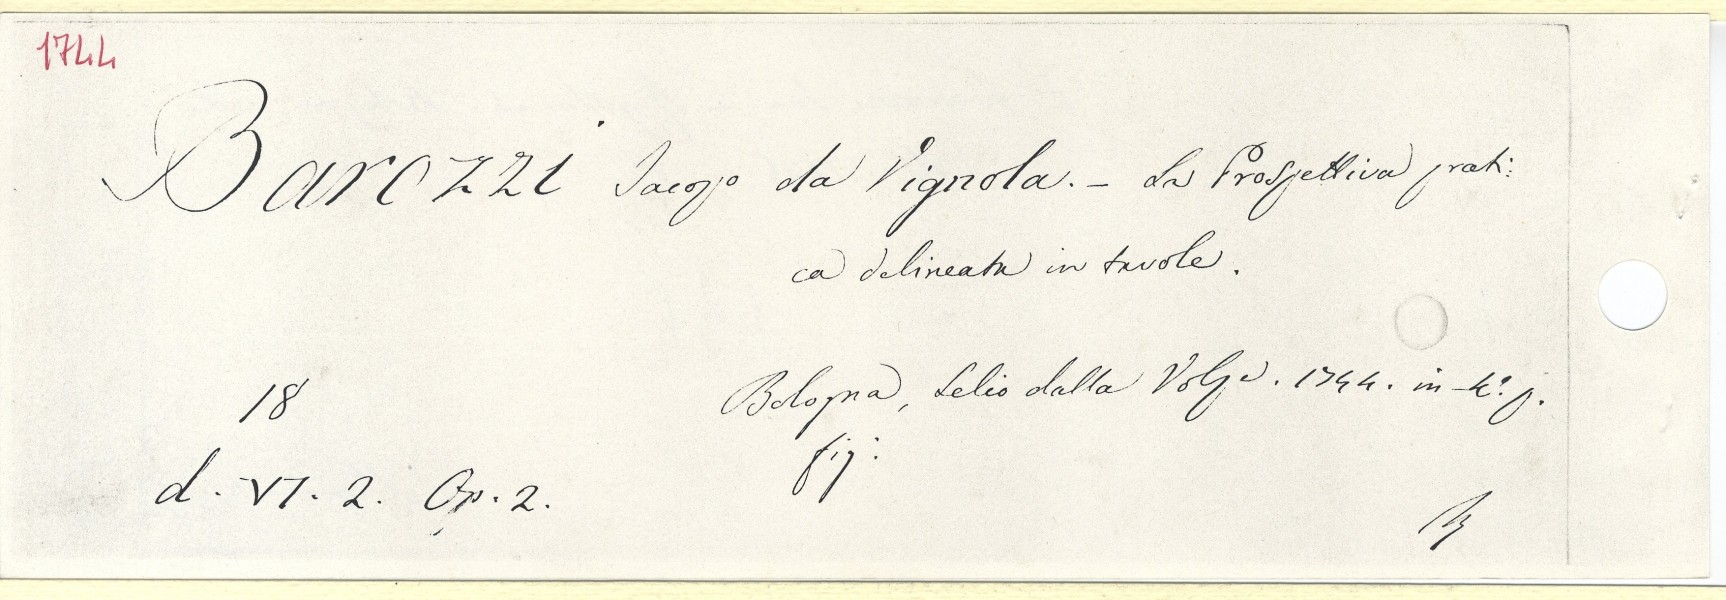 1744
Barozzi Jacopo da Vignola. - La Prospettiva prati:
ca delineata in tavole.
Bologna, Lelio dalla Volpe. 1744. in -4º. p.
fig:
18
d. VI. 2. Op. 2.